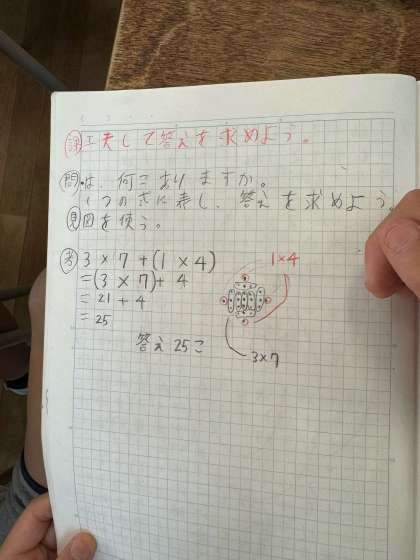 課 工夫して答えを求めよう。
問 •は、何こありますか。
1つの式に表し、答えを求めよう。
見 図を使う。
考 3×7+(1×4)
=(3×7)+4
=21+4
=25
答え 25こ
1×4
3×7